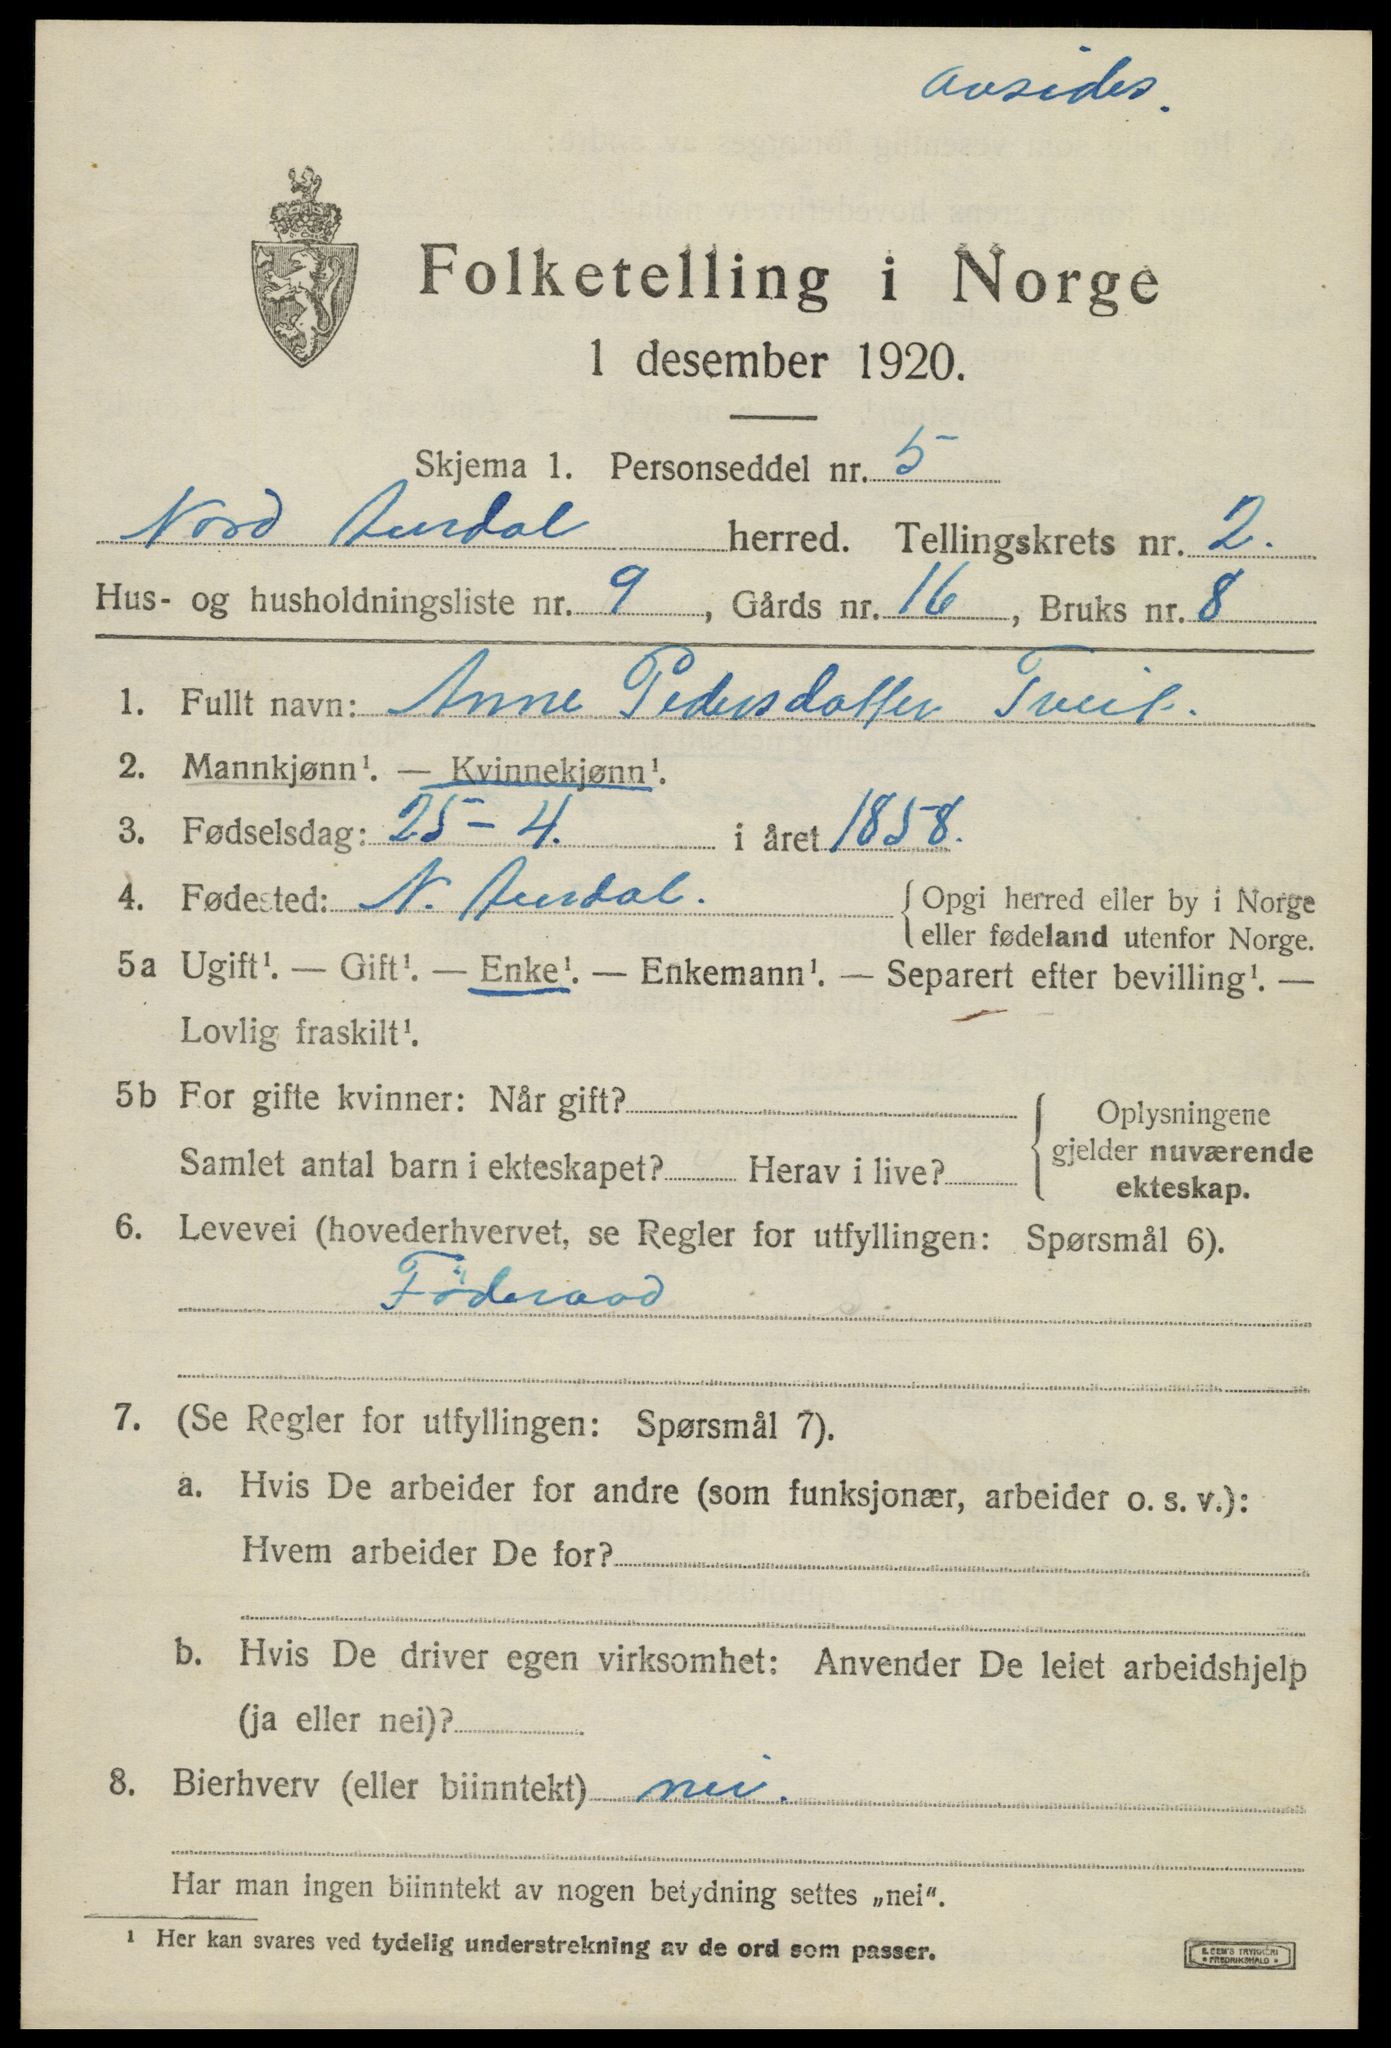 avsides.
Folketelling i Norge
1 desember 1920.
Skjema 1. Personseddel nr. 5
Nord Aurdal herred. Tellingskrets nr. 2.
Hus- og husholdningsliste nr. 9, Gårds nr. 16, Bruks nr. 8
1. Fullt navn: Anne Pedersdatter Tveit.
2. Mannkjønn¹. — Kvinnekjønn¹.
3. Fødselsdag: 25-4. i året 1858.
4. Fødested: N. Aurdal. { Opgi herred eller by i Norge
eller fødeland utenfor Norge.
5a Ugift¹. — Gift¹. — Enke¹. — Enkemann¹. — Separert efter bevilling¹. —
Lovlig fraskilt¹.
5b For gifte kvinner: Når gift? { Oplysningene
gjelder nuværende
Samlet antal barn i ekteskapet? Herav i live?
ekteskap.
6. Levevei (hovederhvervet, se Regler for utfyllingen: Spørsmål 6).
Föderaad
7. (Se Regler for utfyllingen: Spørsmål 7).
a. Hvis De arbeider for andre (som funksjonær, arbeider o. s. v.):
Hvem arbeider De for?
b. Hvis De driver egen virksomhet: Anvender De leiet arbeidshjelp
(ja eller nei)?
8. Bierhverv (eller biinntekt) nei.
Har man ingen biinntekt av nogen betydning settes „nei".
¹ Her kan svares ved tydelig understrekning av de ord som passer.
E. SEM'S TRYKKERI
FREDRIKSHALD